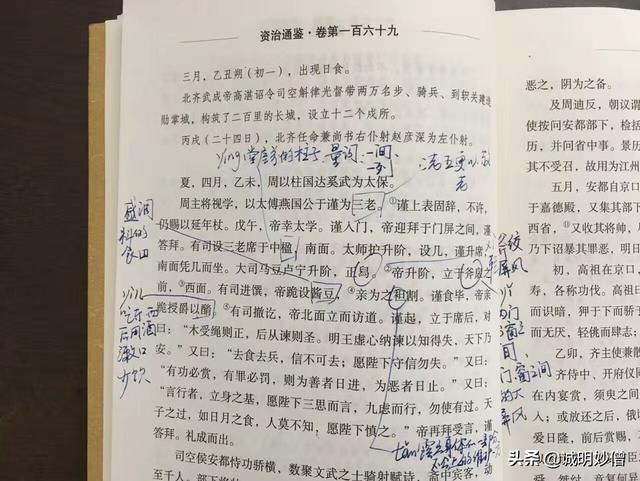 资治通鉴·卷第一百六十九
三月，乙丑朔（初一），出现日食。
北齐武成帝高湛诏令司空斛律光督带两万名步、骑兵，到轵关建造
勋掌城，构筑了二百里的长城，设立十二个戍所。
丙戌（二十四日），北齐任命兼尚书右仆射赵彦深为左仆射。
量词 一间
夏，四月，乙未，周以柱国达奚武为太保。
周主将视学，以太傅燕国公于谨为三老，①谨上表固辞，不许，
仍赐以延年杖。戊午，帝幸太学。谨入门，帝迎拜于门屏之间，谨
答拜。有司设三老席于中楹，南面。太师护升阶，设几，谨升席，
南面凭几而坐。大司马豆卢宁升阶，正舄。②帝升阶，立于斧扆之
前，③西面。有司进馔，帝跪设酱豆，④亲为之袒割。谨食毕，帝亲
跪授爵以酳，⑤有司撤讫，帝北面立而访道。谨起，立于席后，对
曰：“木受绳则正，后从谏则圣。明王虚心纳谏以知得失，天下乃
安。”又曰：“去食去兵，信不可去；愿陛下守信勿失。”又曰：
“有功必赏，有罪必罚，则为善者日进，为恶者日止。”又曰：
“言行者，立身之基，愿陛下三思而言，九虑而行，勿使有过。天
子之过，如日月之食，人莫不知，愿陛下慎之。”帝再拜受言，谨
答拜。礼成而出。
司空侯安都恃功骄横，数聚文武之士骑射赋诗，斋中宾客，动
至千人。
盛调
料的
食皿
吃
后用酒
漱口
屏风
门
窗
之间
门窗之间
的大
屏风
恶之，阴为之备。
及周迪反，朝议谓
使按问安都部下，检括
并问省中事。景历
其不受召，故用为江州
五月，安都自京口
于嘉德殿，又集其部下
西省，
乃下诏暴其罪恶，明日
初，高祖在京口
寿，各称功伐。高祖曰
而识暗，狎于下而骄于
而无厌，轻佻而肆志；
乙卯，齐主使兼散
齐侍中、开府仪同
在内宴赏，须臾之间
人；或放还之后，俄
爱日隆，前后赏赐，
头条 @诚明妙僧